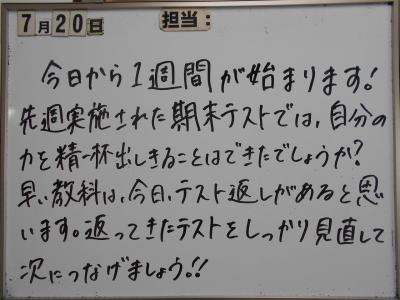 7月20日 担当：
今日から1週間が始まります!
先週実施された期末テストでは、自分の
力を精一杯出しきることはできたでしょうか?
早い教科は、今日、テスト返しがあると思
います。返ってきたテストをしっかり見直して
次につなげましょう!!